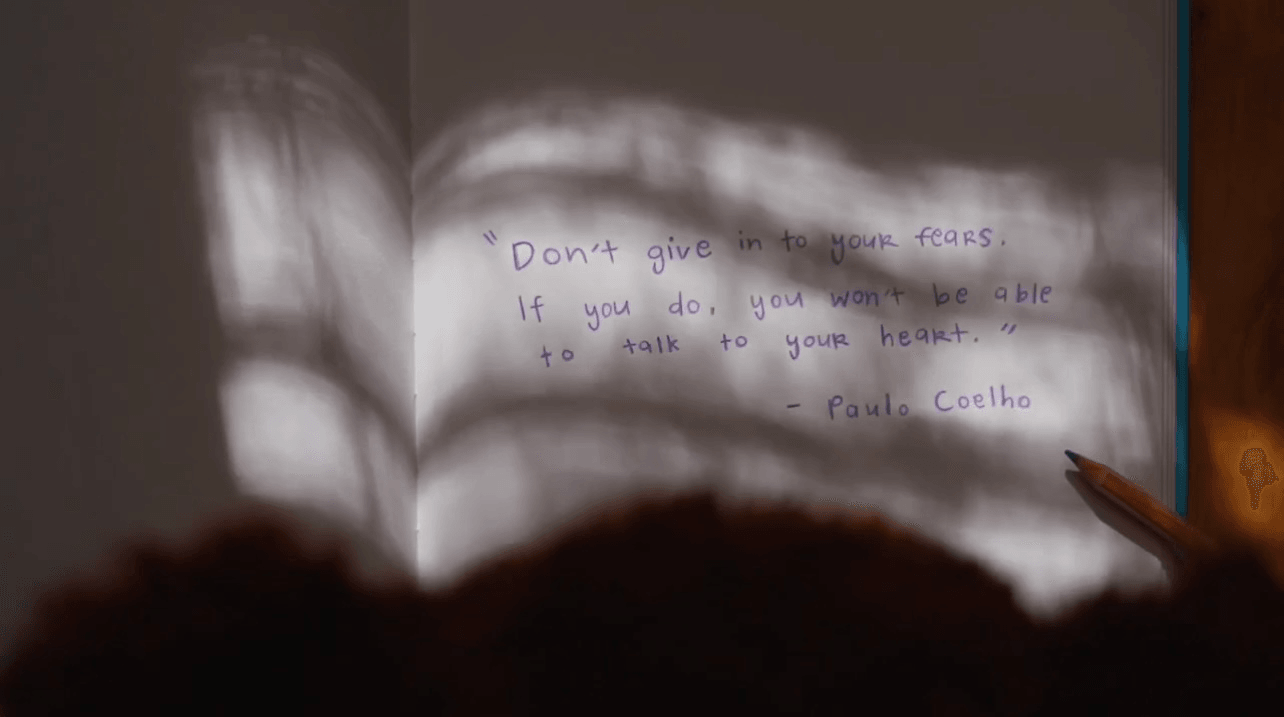 "Don't give in to your fears.
If you do, you won't be able
to talk to your heart."
- Paulo Coelho